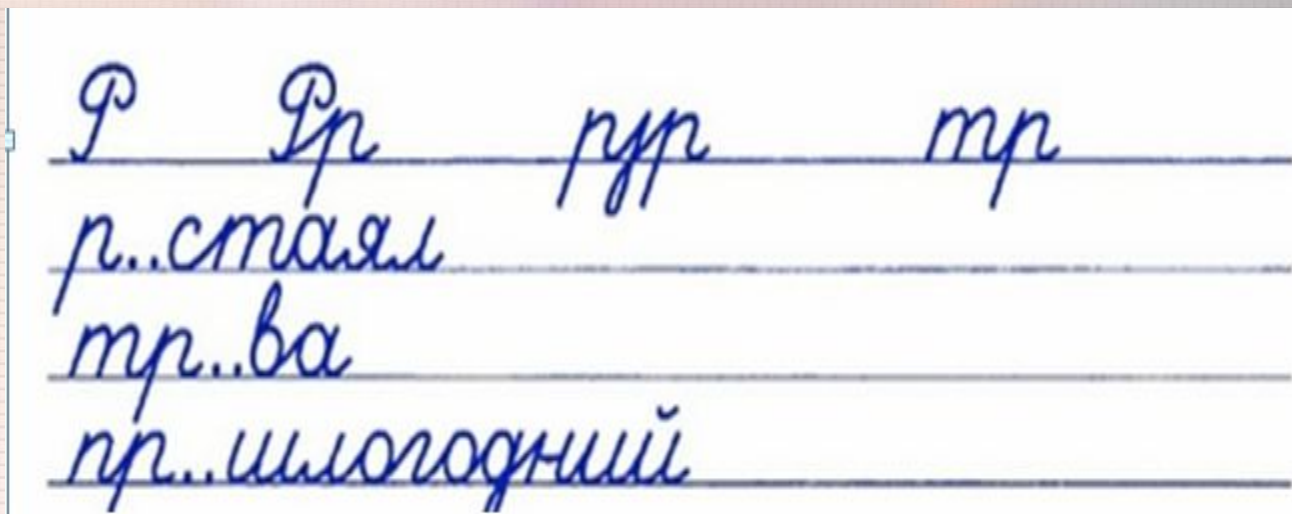 Р Рр рур тр
р..стаял
тр..ва
пр..шлогодний